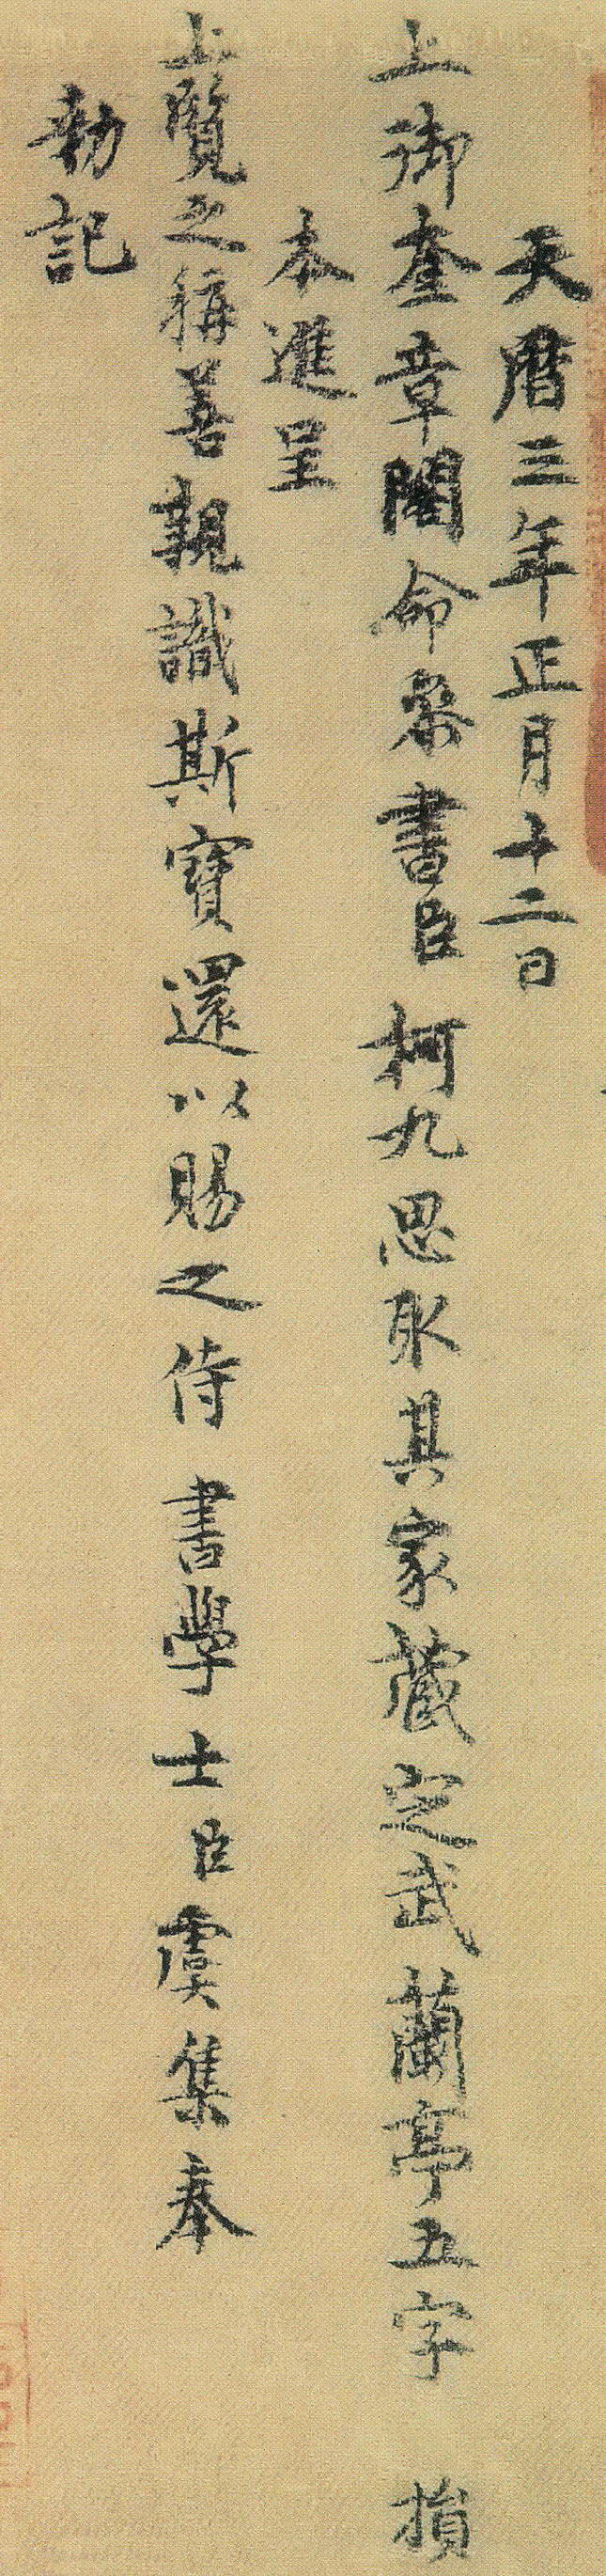 天曆三年正月十二日
上御奎章閣命參書臣柯九思取其家藏定武蘭亭五字損
本進呈
上覽之稱善親識斯寶還以賜之侍書學士臣虞集奉
勑記